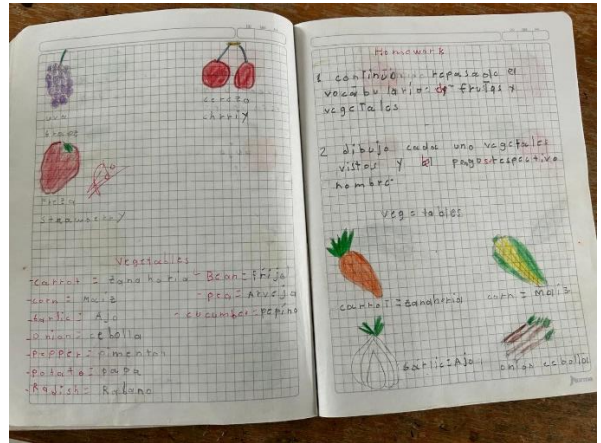 uva
Grape
cereza
chrriy
fresa
strawberry
Vegetables
-carrot = zanahoria
-corn = Maiz
-Garlic = Ajo
-onion = cebolla
-pepper = pimenton
-potato = papa
-Radish = Rabano
-Bean = frijol
-pea = Arveja
-cucumber = pepino
Homework
1 continúo repasado el
vocabulario de frutas y
vegetales
2 dibujo cada uno vegetales
vistos y el respectivo
nombre
vegetables
carrot = zanahoria
corn = Maiz
Garlic = Ajo
onion cebolla